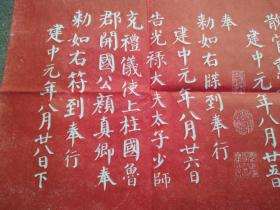 建中元年八月廿五
奉
勅如右牒到奉行
建中元年八月廿六日
告光禄大夫太子少師
充禮儀使上柱國魯
郡開國公顔真卿奉
勅如右符到奉行
建中元年八月廿八日下